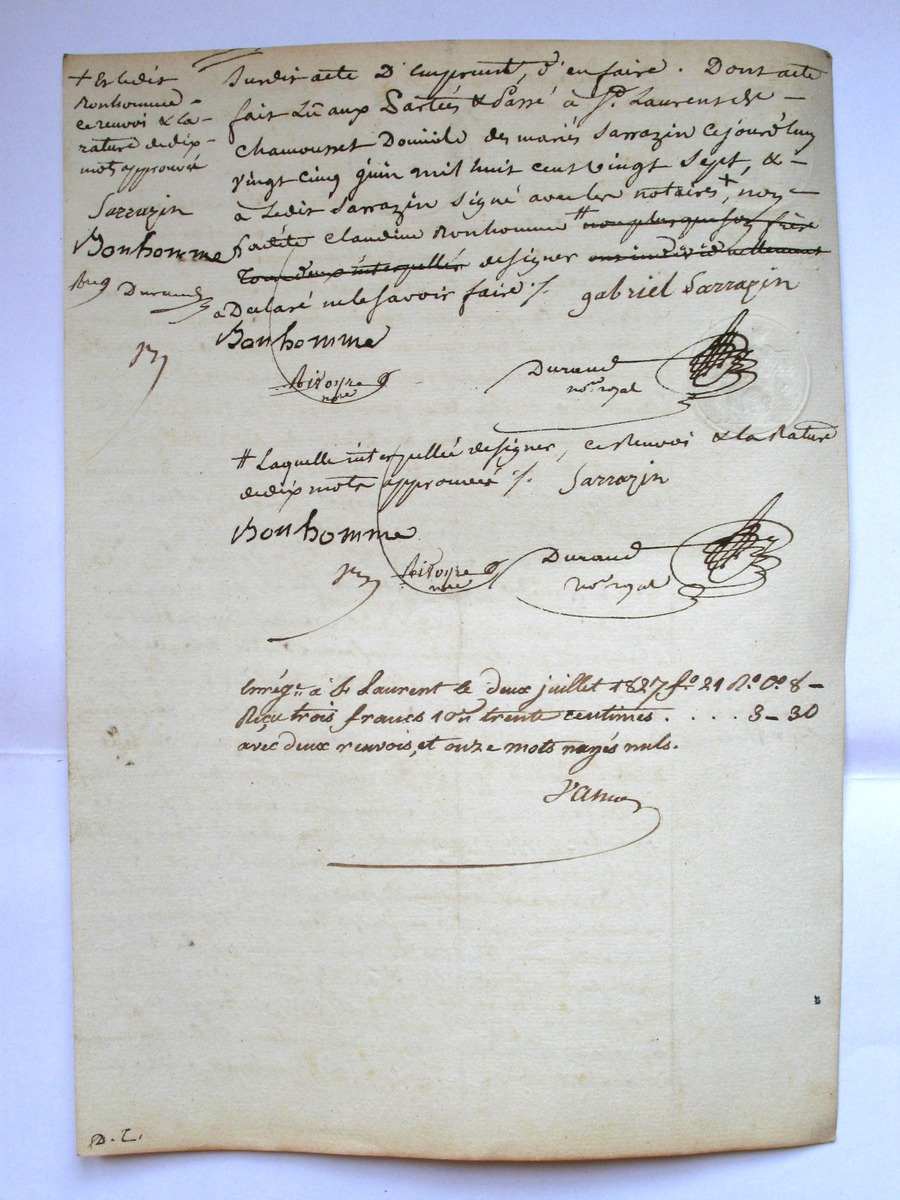 + Et ledit
Bonhomme -
ce renvoi & la -
rature de dix -
mots approuvés
Sarrazin
Bonhomme
Durand
Susdit acte D'Emprunt, d'en faire. Dont acte
fait Lû aux Parties & Passé à St. Laurent de -
Chamousset Domicile des mariés Sarrazin ce jourd'huy
vingt cinq juin mil huit cent vingt sept, & -
a Ledit Sarrazin signé avec les notaires +, non -
Ladite Claudine Bonhomme # non plus que son frère
Tous deux interpellés de signer ont individuellement
a Déclaré ne le savoir faire ./.
gabriel Sarrazin
Bonhomme
Durand
nore. royal
# Laquelle interpellée de signer, ce Renvoi & la Rature
de dix mots approuvés ./. Sarrazin
Bonhomme
Durand
nore. royal
Enrégt. à St Laurent le deux juillet 1827 fo. 21 Ro. Co. 8 -
Reçu trois francs 10e trente centimes . . . . 3 - 30
avec deux renvois, et onze mots rayés nuls.
D. T.